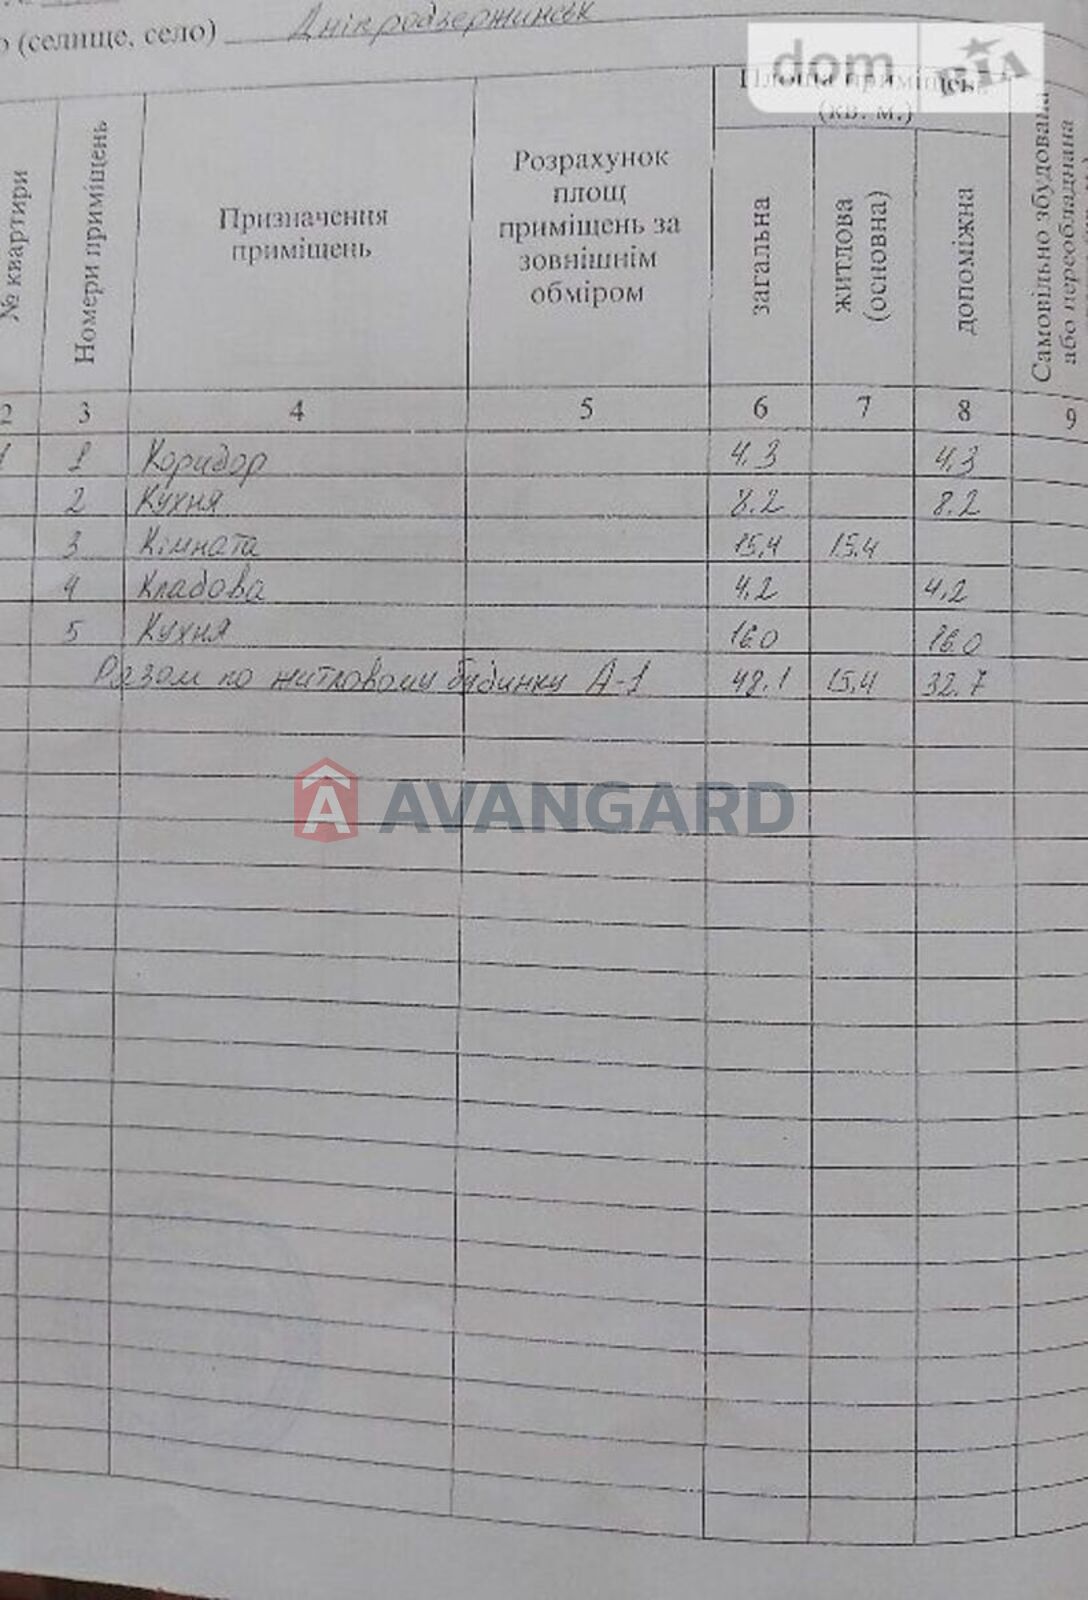 (селище, село) Дніпродзержинськ
dom RIA
Площа приміщень
(кв. м.)
№ квартири
Номери приміщень
Призначення
приміщень
Розрахунок
площ
приміщень за
зовнішнім
обміром
загальна
житлова
(основна)
допоміжна
Самовільно збудована
або переобладнана
2 3 4 5 6 7 8 9
1 1 Коридор 4.3 4,3
2 Кухня 8.2 8.2
3 Кімната 15,4 15.4
4 Кладова 4.2 4,2
5 Кухня 16.0 16.0
Разом по житловому будинку А-1 48.1 15,4 32.7
AVANGARD